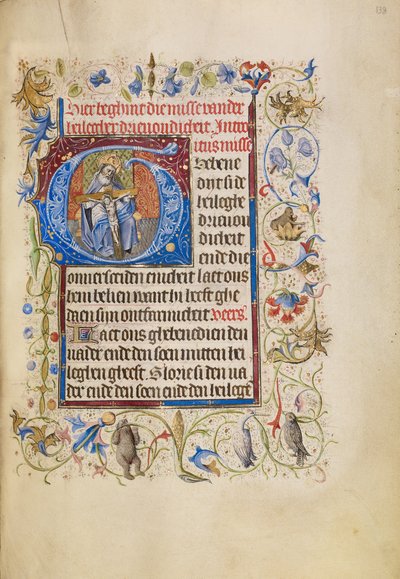 Hier beghint die misse van der
heilegher drievoudicheit Intro
itus misse
Ghebene
dijt si de
heileghe
drivou
dicheit
ende die
enicheit laet ons
hem belien want hi heeft ghe
daen sijn ontfarmicheit Veers.
Laet ons ghebenedien den
vader ende den soen mitten hei
leghen gheest Glorie si den va
der ende den soen ende den heilege